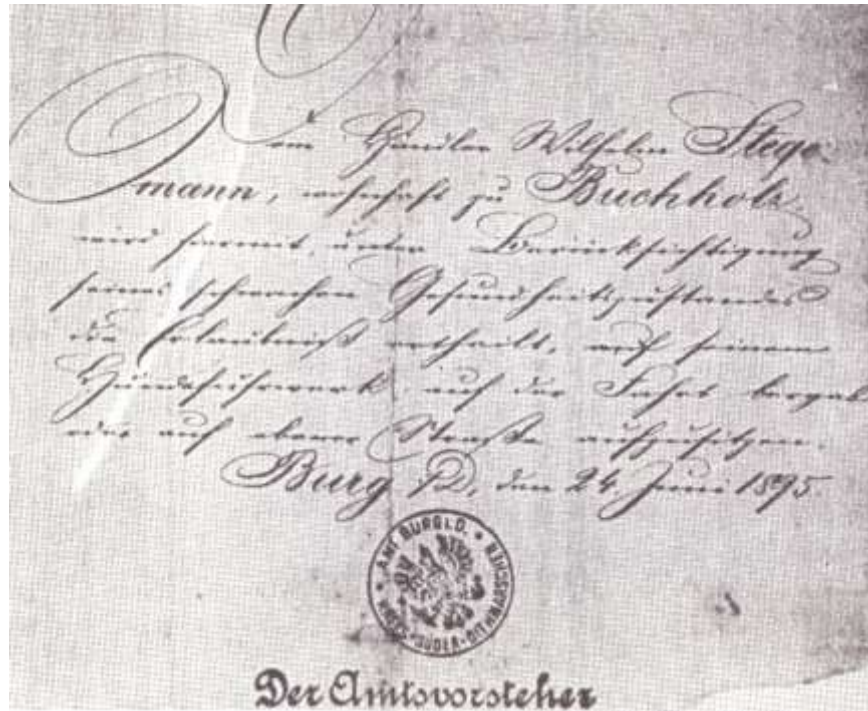 Dem Händler Wilhelm Stege-
mann, wohnhaft zu Buchholz,
wird hiermit, unter Berücksichtigung
seines schwachen Gesundheitszustandes
die Erlaubniß ertheilt, auf seinem
Hundefuhrwerk auf der Fahrt bergab
oder auf ebener Straße aufzusitzen.
Burg i/D, den 24. Juni 1895.
* AMT BURG I.D. *
KREIS SÜDER-DITHMARSCHEN
Der Amtsvorsteher